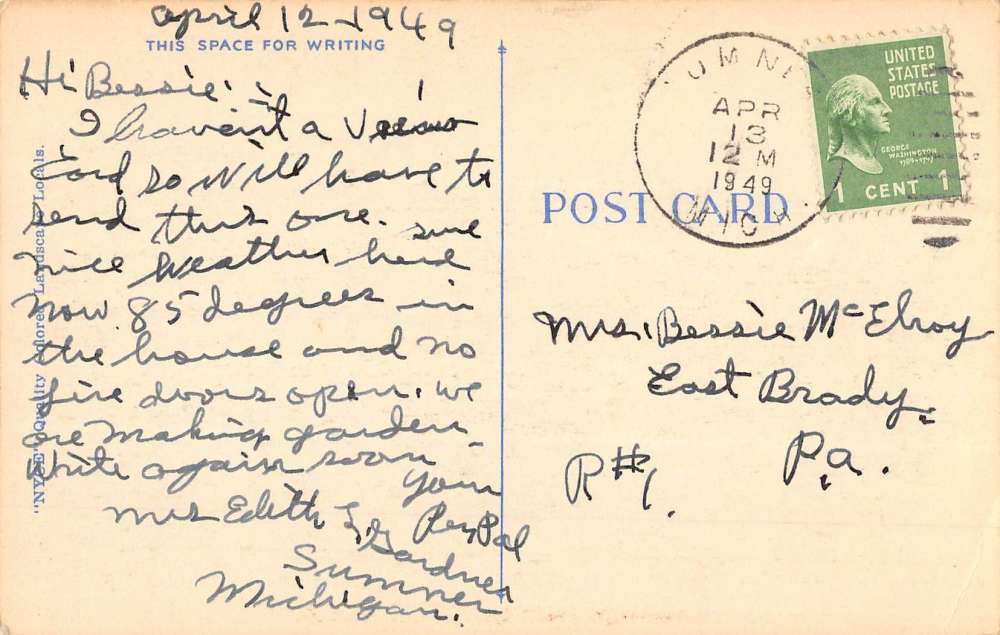 april 12 1949
THIS SPACE FOR WRITING
Hi Bessie:
I haven't a View
Card so will have to
send this one. sure
nice Weather here
now. 85 degrees in
the house and no
fire doors open. we
are making garden
write again soon
your
Pen Pal
Mrs Edith L. Gardner
Sumner
Michigan.
"NYCE" Quality Colored Landscape Locals.
POST CARD
SUMNER
APR
13
12 M
1949
MICH.
UNITED
STATES
POSTAGE
GEORGE
WASHINGTON
1789-1797
1 CENT 1
Mrs. Bessie McElroy
East Brady,
R#1. Pa.